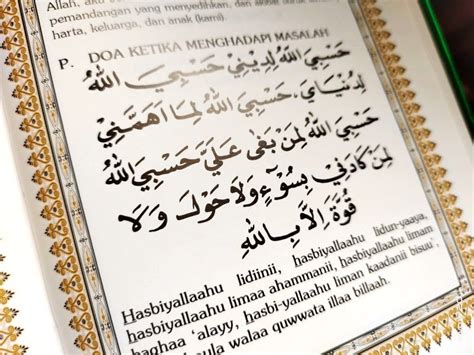 Allah, aku
pemandangan yang menyedihkan, dan
harta, keluarga, dan anak (kami).
P. DOA KETIKA MENGHADAPI MASALAH
حَسْبِيَ اللّٰهُ لِدِيْنِيْ حَسْبِيَ اللّٰهُ
لِدُنْيَايَ، حَسْبِيَ اللّٰهُ لِمَا اَهَمَّنِيْ
حَسْبِيَ اللّٰهُ لِمَنْ بَغٰى عَلَيَّ حَسْبِيَ اللّٰهُ
لِمَنْ كَادَنِيْ بِسُوْءٍ وَلَا حَوْلَ وَلَا
قُوَّةَ اِلَّا بِاللّٰهِ
Hasbiyallaahu lidiinii, hasbiyallaahu lidun-yaaya,
hasbiyallaahu limaa ahammanii, hasbiyallaahu limam
baghaa 'alayy, hasbi-yallaahu liman kaadanii bisuu',
haula walaa quwwata illaa billaah.